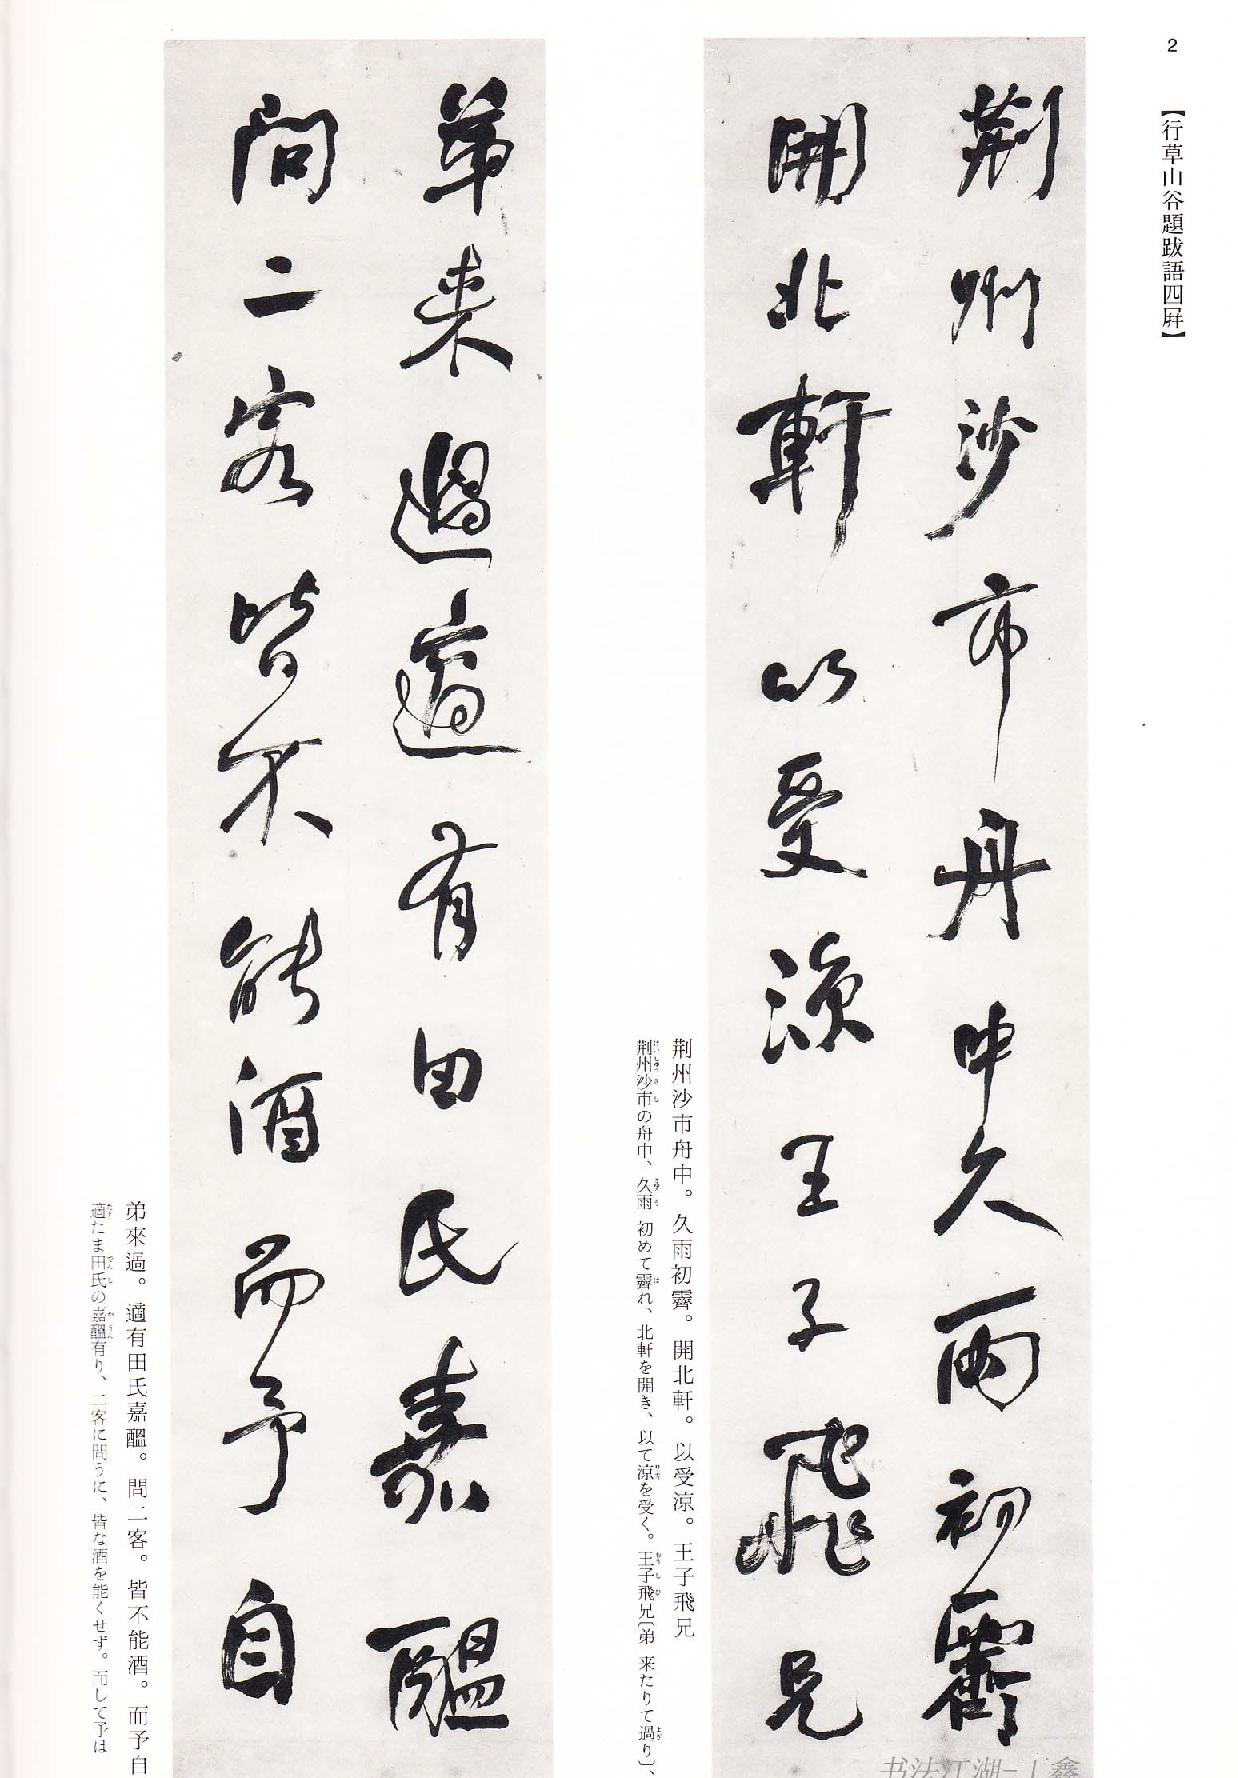 2
【行草山谷題跋語四屏】
荆州沙市舟中久雨初霽
開北軒以受涼王子飛兄
荆州沙市舟中。久雨初霽。開北軒。以受涼。王子飛兄
荆州沙市の舟中、久雨初めて霽れ、北軒を開き、以て涼を受く。王子飛兄〔弟来たりて過り〕、
弟来過適有田氏嘉醞
問二客皆不能酒而予自
弟來過。適有田氏嘉醞。問二客。皆不能酒。而予自
適たま田氏の嘉醞有り、二客に問うに、皆な酒を能くせず。而して予は
书法江湖-